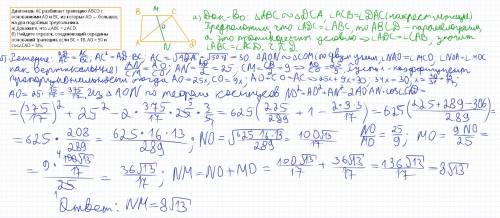 Диагональ AC разбивает трапецию ABCD с
основаниями AD и BC, из которых AD — большее,
на два подобных треугольника.
а) Докажите, что ∠ABC = ∠ACD.
б) Найдите отрезок, соединяющий середины
оснований трапеции, если BC = 18, AD = 50 и
cos∠CAD = 3/5.
B M C
O
A N D
а) Док-во: △ABC ∼ △DCA, ∠ACB = ∠DAC (накрест лежащие)
Предположим что ∠ADC = ∠ABC, то ABCD - параллелограмм,
а это противоречит условию ⇒ ∠ADC = ∠CAB, значит
∠ABC = ∠ACD, ч.т.д.
AC² = AD·BC, AC = = 30 △AON ∼ △COM (по двум углам, ∠NAO = ∠MCO, ∠NOA = ∠MOC
как вертикальные) = 25 : 9 - коэффициент
пропорциональности тогда AO = 25x, CO = 9x, AO + CO = AC ⇒ 25x + 9x = 30, 34x = 30, x = 30/34 = 15/17,
AO = 25 · 15/17 = 375/17 Из △AON по теореме косинусов NO² = AO² + AN² - 2AO·AN·cos∠CAD =
= (375/17)² + 25² - 2 · 375/17 · 25 · 3/5 = 625(225/289 + 1 - 2·3·3/17) = 625(225 + 289 - 306)/289 =
= 625 · 208/289 = 625·16·13/289; NO = √(625·16·13/289) = 100√13/17 NO/MO = 25/9; MO = 9NO/25 =
= 9 · 100√13/17 / 25 = 36√13/17; NM = NO + MO = 100√13/17 + 36√13/17 = 136√13/17 = 8√13
Ответ: NM = 8√13